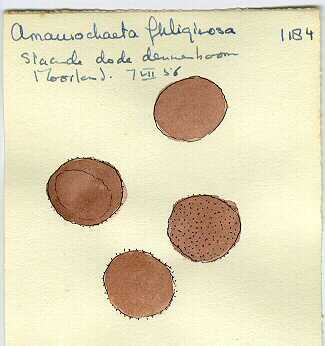 Amaurochaete fuliginosa 1184
Staande dode dennenboom
Moorland. 7 VII 56